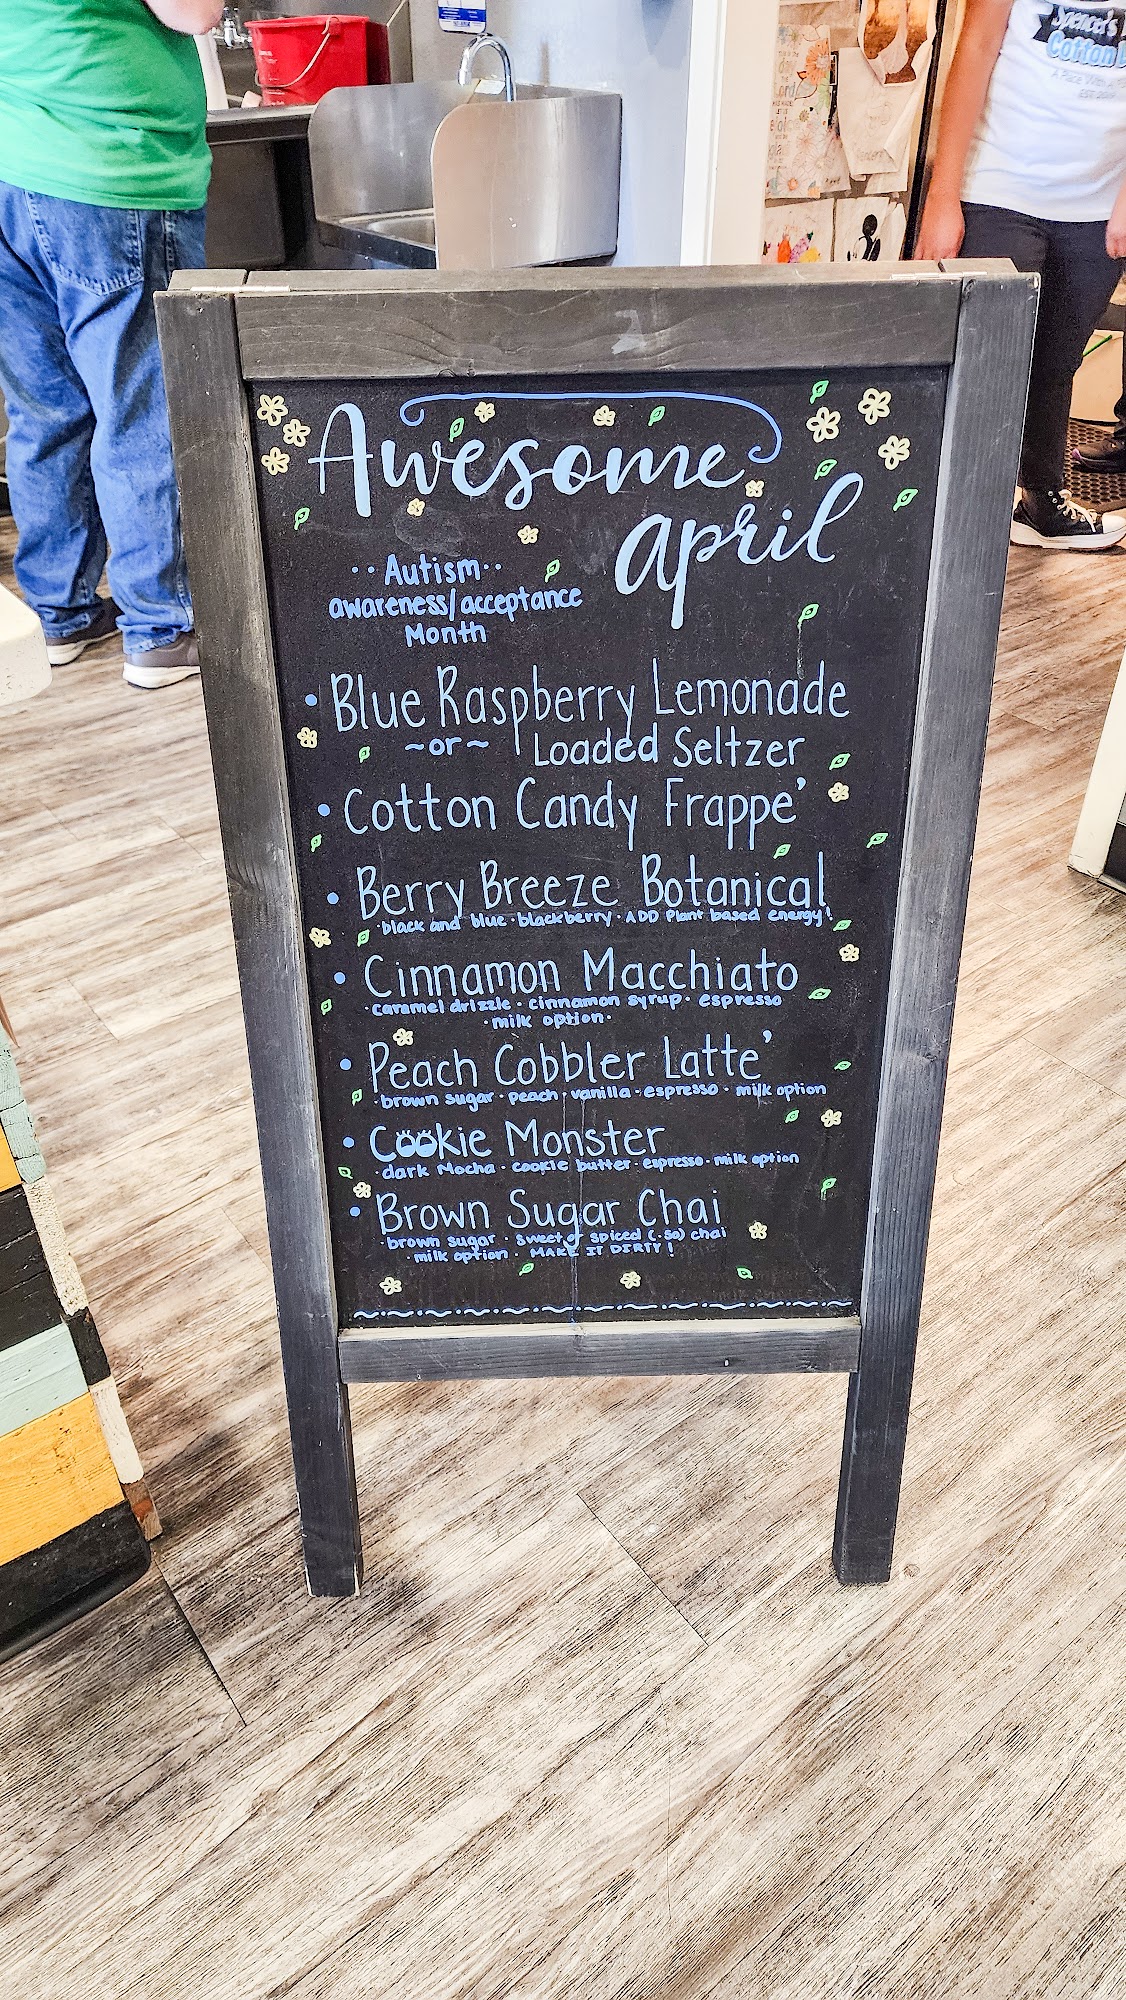 Spencer's
Cotton
A Place With A
EST
Awesome
april
··Autism··
awareness/acceptance
Month
• Blue Raspberry Lemonade
~or~ Loaded Seltzer
• Cotton Candy Frappe'
• Berry Breeze Botanical
·black and blue·blackberry·ADD Plant based energy!·
• Cinnamon Macchiato
·caramel drizzle·cinnamon syrup·espresso
·milk option·
• Peach Cobbler Latte'
·brown sugar·peach·vanilla·espresso·milk option
• Cookie Monster
·dark Mocha·cookie butter·espresso·milk option
• Brown Sugar Chai
·brown sugar·sweet or spiced (.50) chai
·milk option·MAKE IT DIRTY!